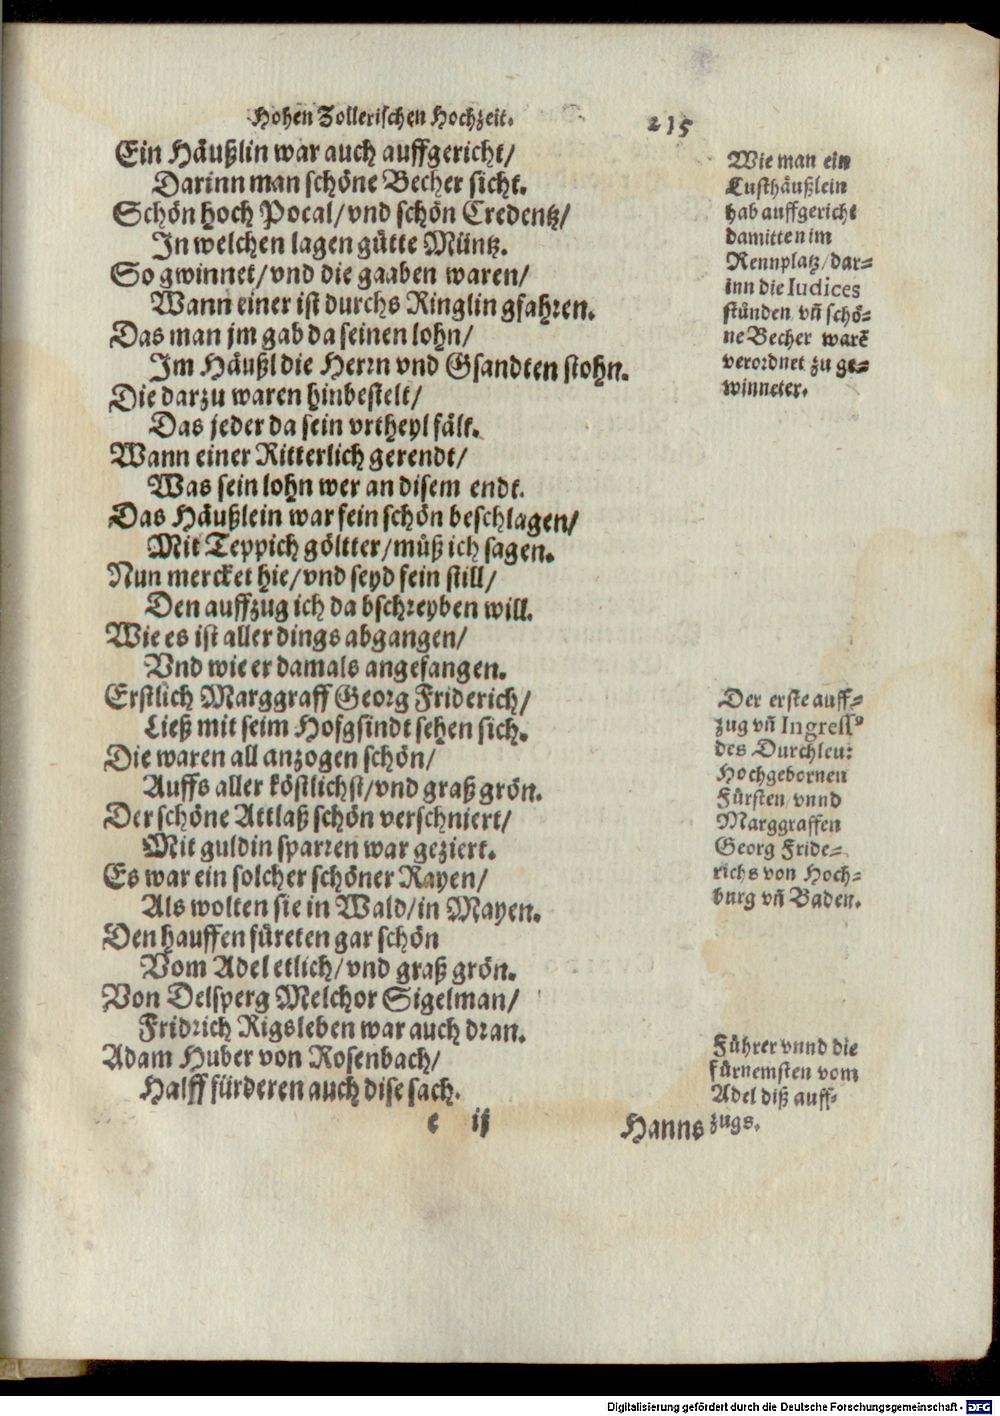 Hohen Zollerischen Hochzeit. 215
Ein Häußlin war auch auffgericht/
Darinn man schöne Becher sicht.
Schön hoch Pocal/vnd schön Credentz/
In welchen lagen gütte Müntz.
So gwinnet/vnd die gaaben waren/
Wann einer ist durchs Ringlin gfahren.
Das man jm gab da seinen lohn/
Im Häußl die Herrn vnd Gsandten stohn.
Die darzu waren hinbestelt/
Das jeder da sein vrtheyl fält.
Wann einer Ritterlich gerendt/
Was sein lohn wer an disem endt.
Das Häußlein war fein schön beschlagen/
Mit Teppich göltter/müß ich sagen.
Nun mercket hie/vnd seyd fein still/
Den auffzug ich da bschreyben will.
Wie es ist aller dings abgangen/
Vnd wie er damals angefangen.
Erstlich Marggraff Georg Friderich/
Ließ mit seim Hofgsindt sehen sich.
Die waren all anzogen schön/
Auffs aller köstlichst/vnd graß grön.
Der schöne Attlaß schön verschniert/
Mit guldin sparren war geziert.
Es war ein solcher schöner Rayen/
Als wolten sie in Wald/in Mayen.
Den hauffen füreten gar schön
Vom Adel etlich/vnd graß grön.
Von Delsperg Melchor Sigelman/
Fridrich Rigsleben war auch dran.
Adam Huber von Rosenbach/
Halff fürderen auch dise sach.
e ij Hanns
Wie man ein
Lusthäußlein
hab auffgericht
damitten im
Rennplatz/dar=
inn die Iudices
stünden vñ schö=
ne Becher warē
verordnet zu ge=
winneter.
Der erste auff=
zug vñ Ingress⁹
des Durchleu:
Hochgebornen
Fürsten vnnd
Marggraffen
Georg Fride=
richs von Hoch=
burg vñ Baden.
Führer vnnd die
fürnemsten vom
Adel diß auff=
zugs.
Digitalisierung gefördert durch die Deutsche Forschungsgemeinschaft - DFG